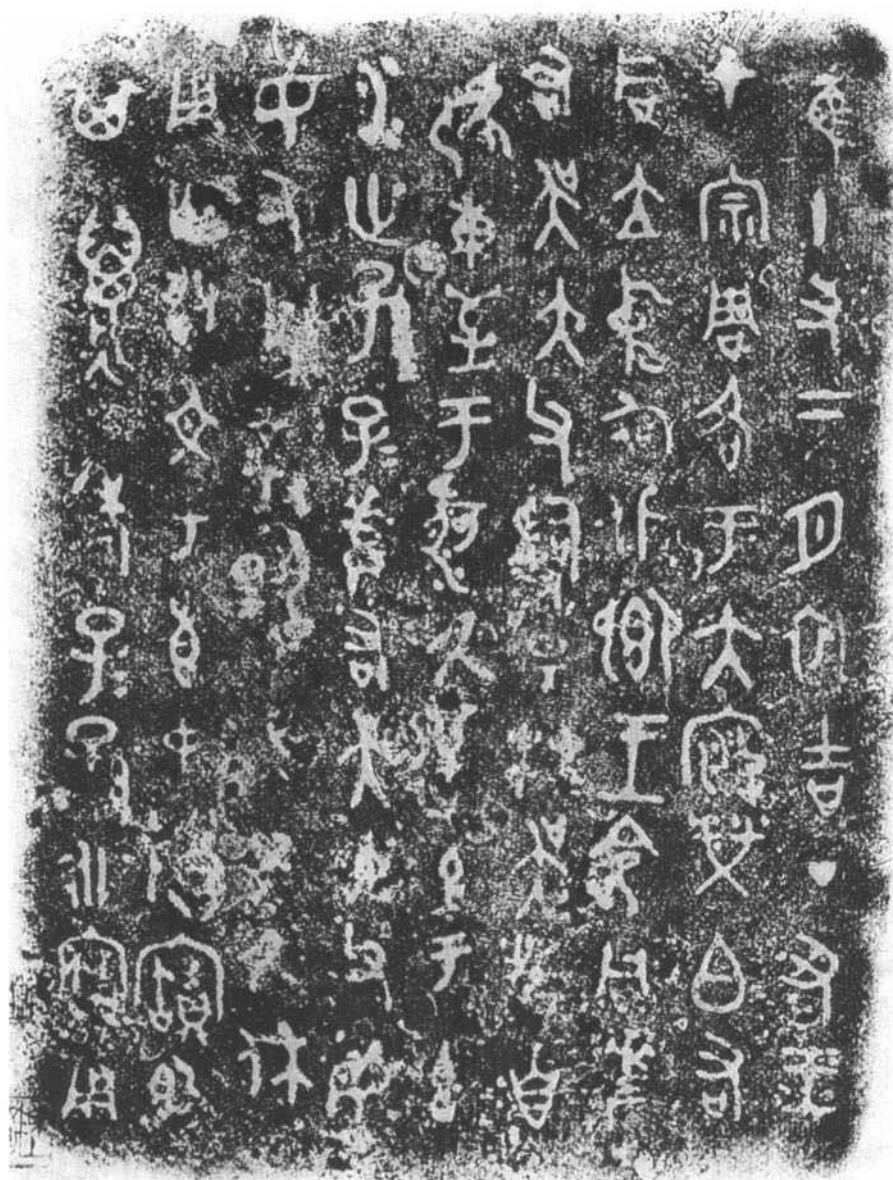 隹十又二月初吉丁丑王
才宗周各于大廟𤇾白右
同立中廷北鄉王命同差
右吳大父𤔲昜林吳牧自
淲東至于河厥逆至于玄
水世孫孫子子差右吳大父毋
女又閑對揚天子厥休
用乍朕文丂叀中尊寶𣪘
其萬年子子孫孫永寶用